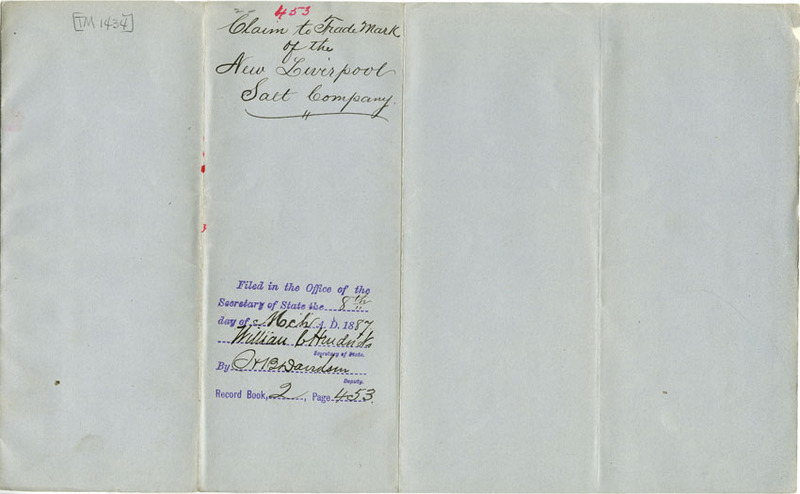 [TM 1434]
453
Claim to Trade Mark
of the
New Liverpool
Salt Company.
Filed in the Office of the
Secretary of State the 8th
day of Mch A. D. 1887
William C Hendricks
Secretary of State.
By H B Davidson
Deputy.
Record Book, 2, Page 453.